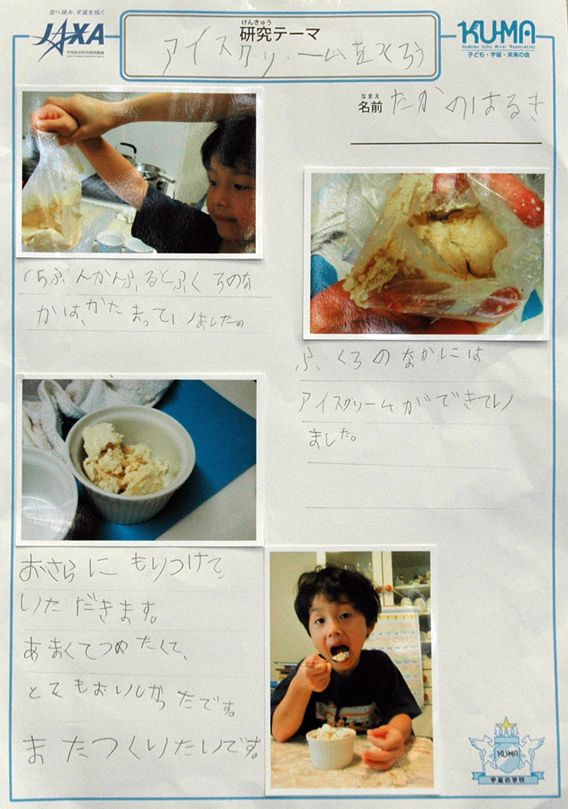 空へ挑み、宇宙を拓く
JAXA
けんきゅう
研究テーマ
アイスクリームをつくろう
KU-MA
Kodomo Uchu Mirai Association
子ども・宇宙・未来の会
なまえ
名前 たかのはるき
15ふんかんふるとふくろのな
かは、かたまっていました。
ふくろのなかには
アイスクリームができてい
ました。
おさらにもりつけて、
いただきます。
あまくてつめたくて、
とてもおいしかったです。
またつくりたいです。
KU-MA
宇宙の学校